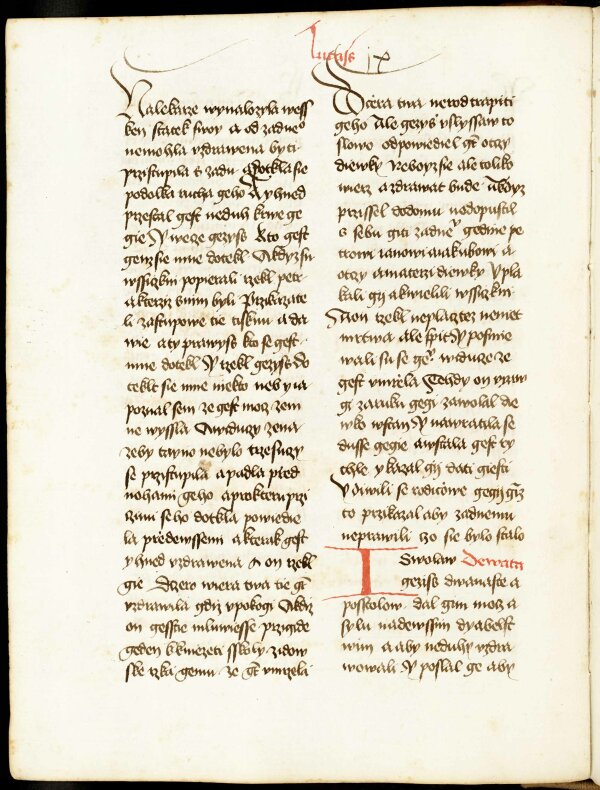 lucass ix
Na lekarze wynalozyla wess
ken statek swoy a od zadneo
nemohla vzdrawena byti
przistupila s zadu Dotkla sie
podolka rucha geho A yhned
przestal gest neduh krwe ge
gie Y wece gezyss kto gest
genz sie mne dotekl A kdyz su
wssiczkni popierali rzekl petr
a kterzi s nim byli Przikazate
li zastupowe tie tisknu a da
wie a ty prawyss kto se gest
mne dotekl Y rzekl gezyss do
tekl sie mne niekto neb y ia
poznal sem ze gest moc ze mn
ne wyssla A widuzy zena
zeby tayno nebylo trzesuzy
se przistupila a padla przed
nohami geho a pro kteru przi
czinu se ho dotkla powiedie
la przedewssemi a kterak gest
yhned vzdrawena A on rzekl
gie Dzero wiera twa tie gt
vzdrawila gdiz v pokogi A kdiz
on gesstie mluwiesse przigide
geden k kniezeti sskoly zidow
ske rzka gemu ze gt vmrzela
Dcera twa nerod trapiti
geho Ale gezyss vslyssaw to
slowo odpowiediel gt otczy
diewky Neboy sie ale toliko
wierz a zdrawat bude A kdyz
przissel do domu nedopustil
s sebu giti zadneu gedine pe
trowi ianowi a iakubowi a
otczy a materzi diewky Y pla
kali gij a kwielili wssiczkni
A on rzekl neplacztez neniet
mrtwa ale spit Y posmie
wali su se geu wieduze ze
gest vmrzela Tehdy on vzaw
gi za ruku gegi zawolal die
wko wstan Y nawratila se
dusse gegie a wstala gest ty
czhle y kazal gij dati giesti
Y diwili se rodiczowe gegij gimz
to przikazal aby zadnemu
neprawili czo sie bylo stalo
Swolaw Dewata
geziss dwanaste a
posstolow dal gim moc a
sylu nade wssim dyabelst
wim a aby neduhy vzdra
wowali Y poslal ge aby